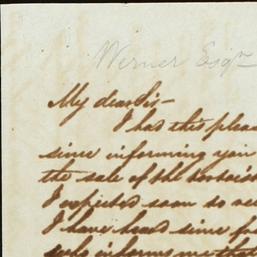 Werner Esqr
My dear Sir-
I had this pleas
since informing you
the sale of the
I expected soon to re
I have heard since fr
who informs me that